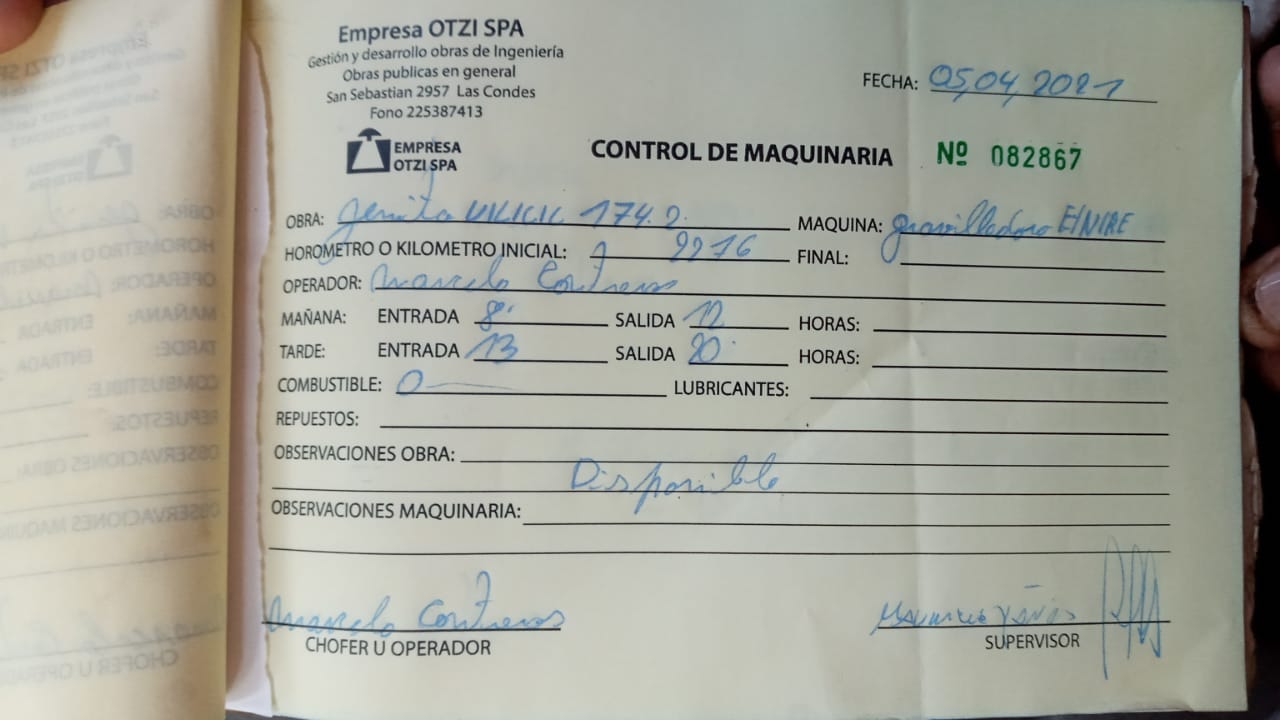 Empresa OTZI SPA
Gestión y desarrollo obras de Ingeniería
Obras publicas en general
San Sebastian 2957 Las Condes
Fono 225387413
FECHA: 05,04,2021
EMPRESA
OTZI SPA
CONTROL DE MAQUINARIA Nº 082867
OBRA: 174.2. MAQUINA: gravilladora
HOROMETRO O KILOMETRO INICIAL: FINAL:
OPERADOR: Marcelo Contreras
MAÑANA: ENTRADA 8 SALIDA 12 HORAS:
TARDE: ENTRADA 13 SALIDA 20 HORAS:
COMBUSTIBLE: 0 LUBRICANTES:
REPUESTOS:
OBSERVACIONES OBRA:
Disponible
OBSERVACIONES MAQUINARIA:
Marcelo Contreras Mauricio
CHOFER U OPERADOR SUPERVISOR